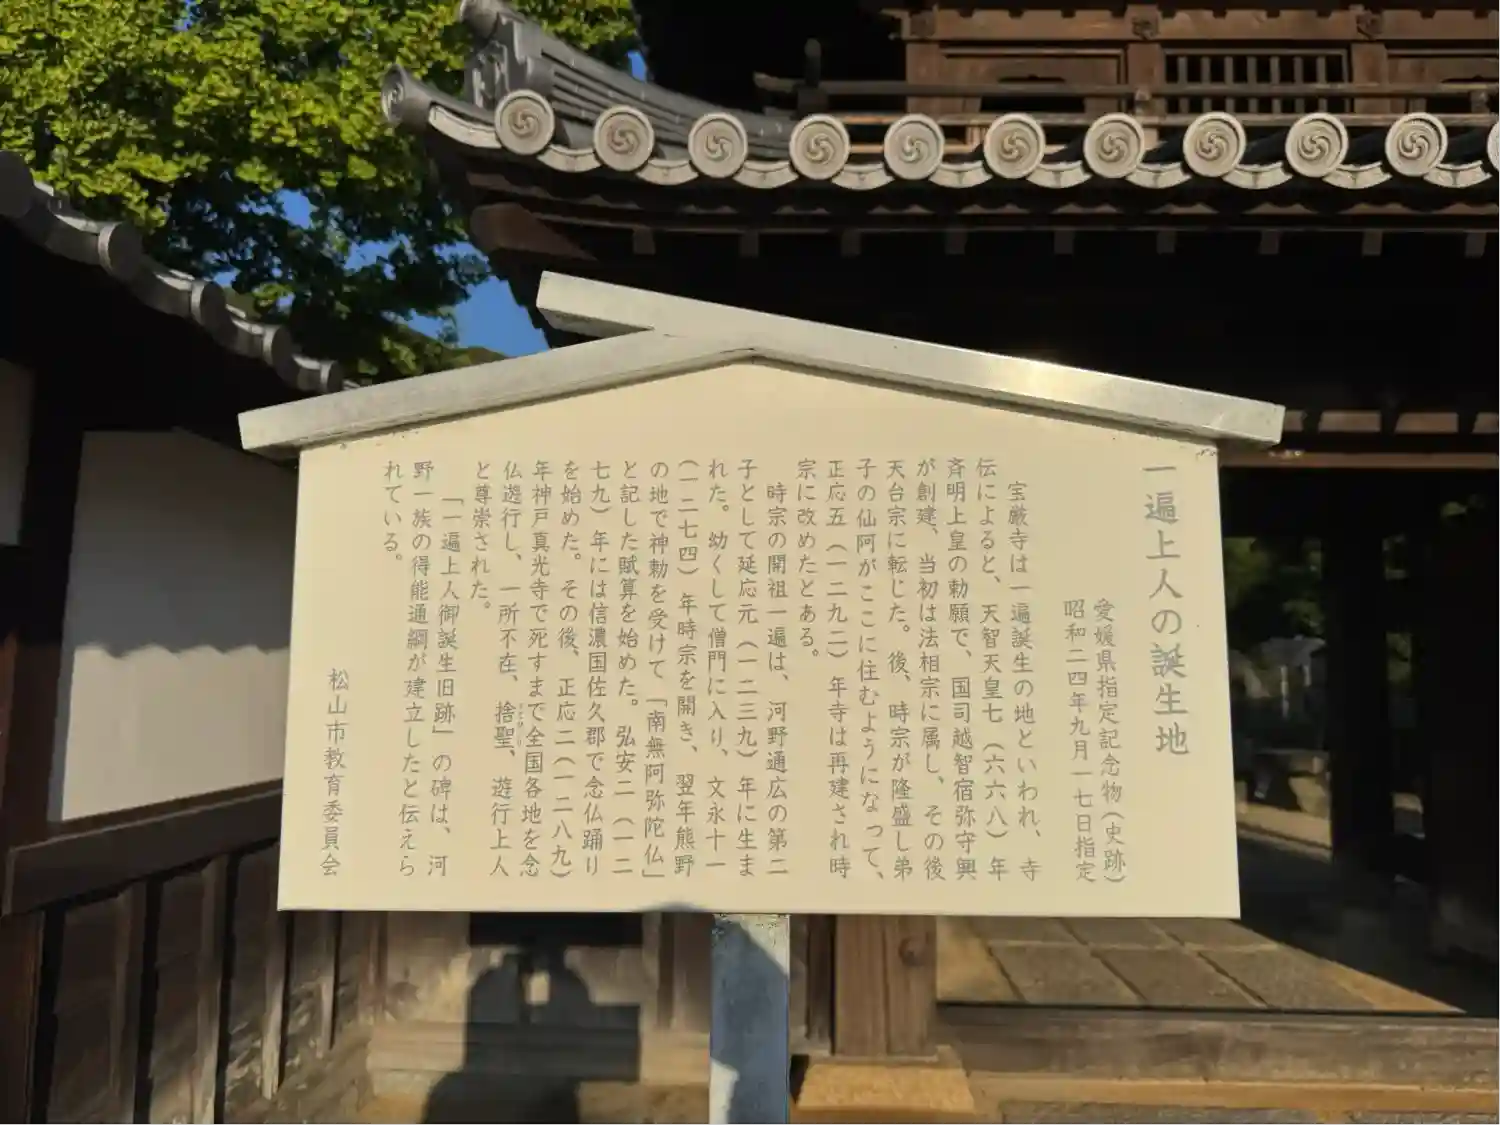 一遍上人の誕生地
愛媛県指定記念物(史跡)
昭和二四年九月一七日指定
宝厳寺は一遍誕生の地といわれ、寺
伝によると、天智天皇七(六六八)年
斉明上皇の勅願で、国司越智宿弥守興
が創建、当初は法相宗に属し、その後
天台宗に転じた。後、時宗が隆盛し弟
子の仙阿がここに住むようになって、
正応五(一二九二)年寺は再建され時
宗に改めたとある。
時宗の開祖一遍は、河野通広の第二
子として延応元(一二三九)年に生ま
れた。幼くして僧門に入り、文永十一
(一二七四)年時宗を開き、翌年熊野
の地で神勅を受けて「南無阿弥陀仏」
と記した賦算を始めた。弘安二(一二
七九)年には信濃国佐久郡で念仏踊り
を始めた。その後、正応二(一二八九)
年神戸真光寺で死すまで全国各地を念
仏遊行し、一所不在、捨聖、遊行上人
すてひじり
と尊崇された。
「一遍上人御誕生旧跡」の碑は、河
野一族の得能通綱が建立したと伝えら
れている。
松山市教育委員会